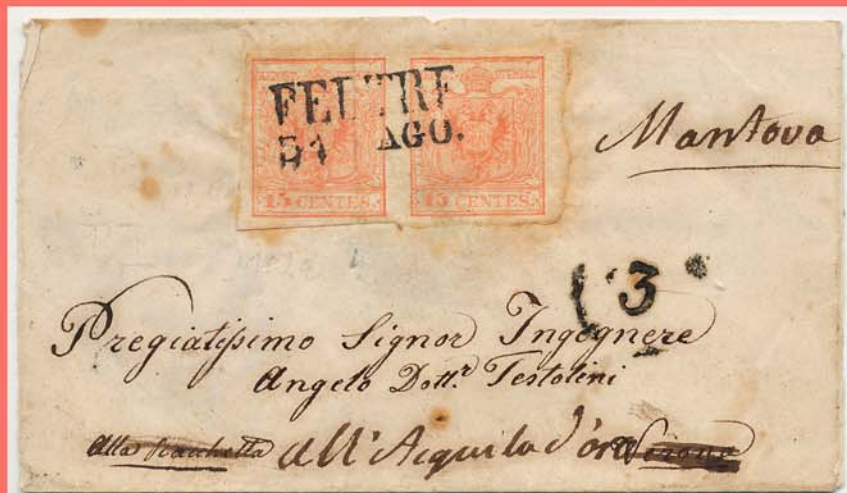 FELTRE
31 AGO.
15 CENTES. 15 CENTES.
Mantova
3
Pregiatissimo Signor Ingegnere
Angelo Dott.r Testolini
alla Racchetta all'Acquila d'oro Verona